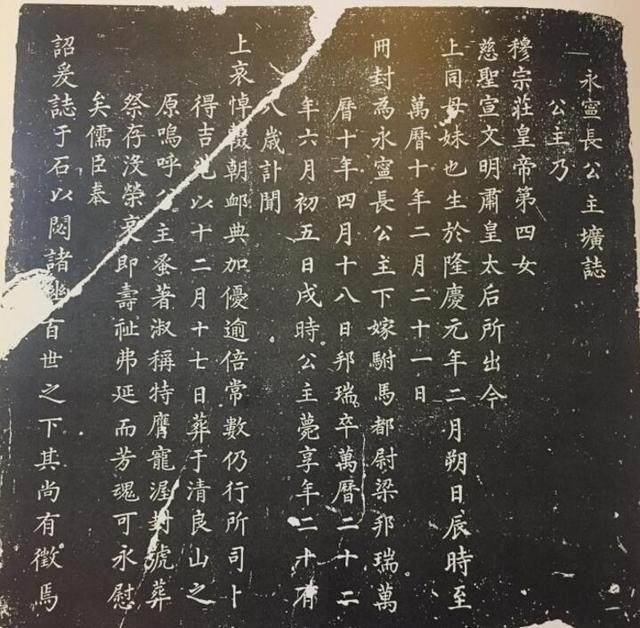 永寧長公主壙誌
公主乃
穆宗莊皇帝第四女
慈聖宣文明肅皇太后所出今
上同母妹也生於隆慶元年二月朔日辰時至
萬曆十年二月二十一日
冊封為永寧長公主下嫁駙馬都尉梁邦瑞萬
曆十年四月十八日邦瑞卒萬曆二十二
年六月初五日戌時公主薨享年二十有
八歲訃聞
上哀悼輟朝卹典加優逾倍常數仍行所司卜
得吉兆以十二月十七日葬于清良山之
原嗚呼公主蚤著淑稱特膺寵渥封號葬
祭存沒榮哀即壽祉弗延而芳魂可永慰
矣儒臣奉
詔爰誌于石以閟諸幽百世之下其尚有徵焉